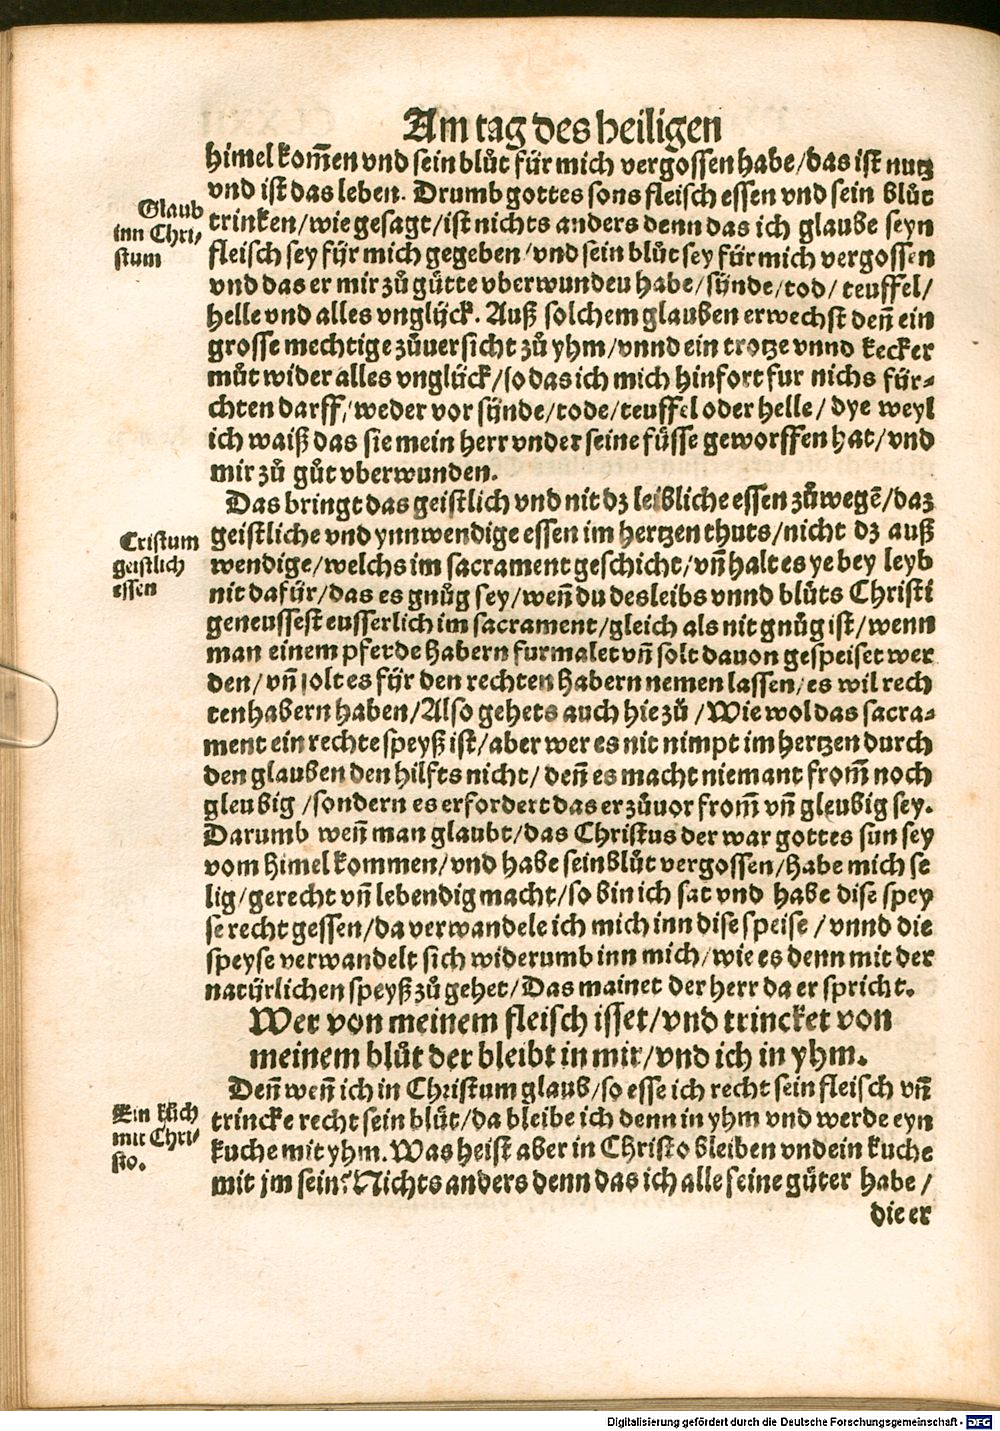 Am tag des heiligen
himel kom̃en vnd sein blůt für mich vergossen habe/das ist nutz
vnd ist das leben. Drumb gottes sons fleisch essen vnd sein blůt
Glaub
inn Chri/
stum
trinken/wie gesagt/ist nichts anders denn das ich glaube seyn
fleisch sey für mich gegeben/vnd sein blůt sey für mich vergossen
vnd das er mir zů gütte vberwunden habe/sünde/tod/teuffel/
helle vnd alles vnglück. Auß solchem glauben erwechst deñ ein
grosse mechtige zůuersicht zů yhm/vnnd ein trotze vnnd kecker
můt wider alles vnglück/so das ich mich hinfort fur nichs für⸗
chten darff/weder vor sünde/tode/teuffel oder helle/dye weyl
ich waiß das sie mein herr vnder seine füsse geworffen hat/vnd
mir zů gůt vberwunden.
Das bringt das geistlich vnd nit dz leibliche essen zůwegẽ/daz
Cristum
geistlich
essen
geistliche vnd ynnwendige essen im hertzen thuts/nicht dz auß
wendige/welchs im sacrament geschicht/vñ halt es ye bey leyb
nit dafür/das es gnůg sey/weñ du des leibs vnnd blůts Christi
geneussest eusserlich im sacrament/gleich als nit gnůg ist/wenn
man einem pferde habern furmalet vñ solt dauon gespeiset wer
den/vñ solt es für den rechten habern nemen lassen/es wil rech
ten habern haben/Also gehets auch hie zů/Wie wol das sacra⸗
ment ein rechte speyß ist/aber wer es nit nimpt im hertzen durch
den glauben den hilfts nicht/deñ es macht niemant from̃ noch
gleubig/sondern es erfordert das er zůuor from̃ vñ gleubig sey.
Darumb weñ man glaubt/das Christus der war gottes sun sey
vom himel kommen/vnd habe sein blůt vergossen/habe mich se
lig/gerecht vñ lebendig macht/so bin ich sat vnd habe dise spey
se recht gessen/da verwandele ich mich inn dise speise/vnnd die
speyse verwandelt sich widerumb inn mich/wie es denn mit der
natürlichen speyß zů gehet/Das mainet der herr da er spricht.
Wer von meinem fleisch isset/vnd trincket von
meinem blůt der bleibt in mir/vnd ich in yhm.
Deñ weñ ich in Christum glaub/so esse ich recht sein fleisch vñ
Ein kůch
mit Chri/
sto.
trincke recht sein blůt/da bleibe ich denn in yhm vnd werde eyn
kuche mit yhm. Was heist aber in Christo bleiben vnd ein kuche
mit jm sein? Nichts anders denn das ich alle seine güter habe/
die er
Digitalisierung gefördert durch die Deutsche Forschungsgemeinschaft - DFG